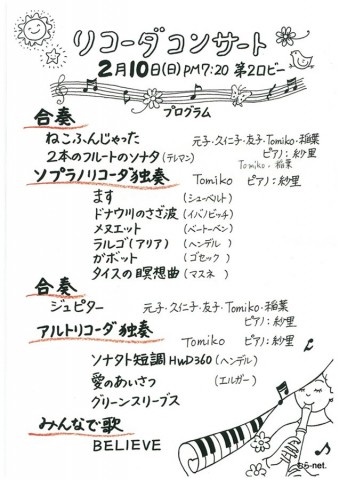 リコーダコンサート
2月10日(日)PM7:20 第2ロビー
プログラム
合奏
ねこふんじゃった 元子・久仁子・友子・Tomiko・稲葉
ピアノ:紗里
2本のフルートのソナタ(テレマン) Tomiko・稲葉
ソプラノリコーダ独奏 Tomiko ピアノ:紗里
ます (シューベルト)
ドナウ川のさざ波(イバノビッチ)
メヌエット (ベートーベン)
ラルゴ(アリア) (ヘンデル)
ガボット (ゴセック)
タイスの瞑想曲(マスネ)
合奏
ジュピター 元子・久仁子・友子・Tomiko・稲葉
ピアノ:紗里
アルトリコーダ独奏 Tomiko ピアノ:紗里
ソナタト短調HWD360(ヘンデル)
愛のあいさつ (エルガー)
グリーンスリーブス
みんなで歌
BELIEVE